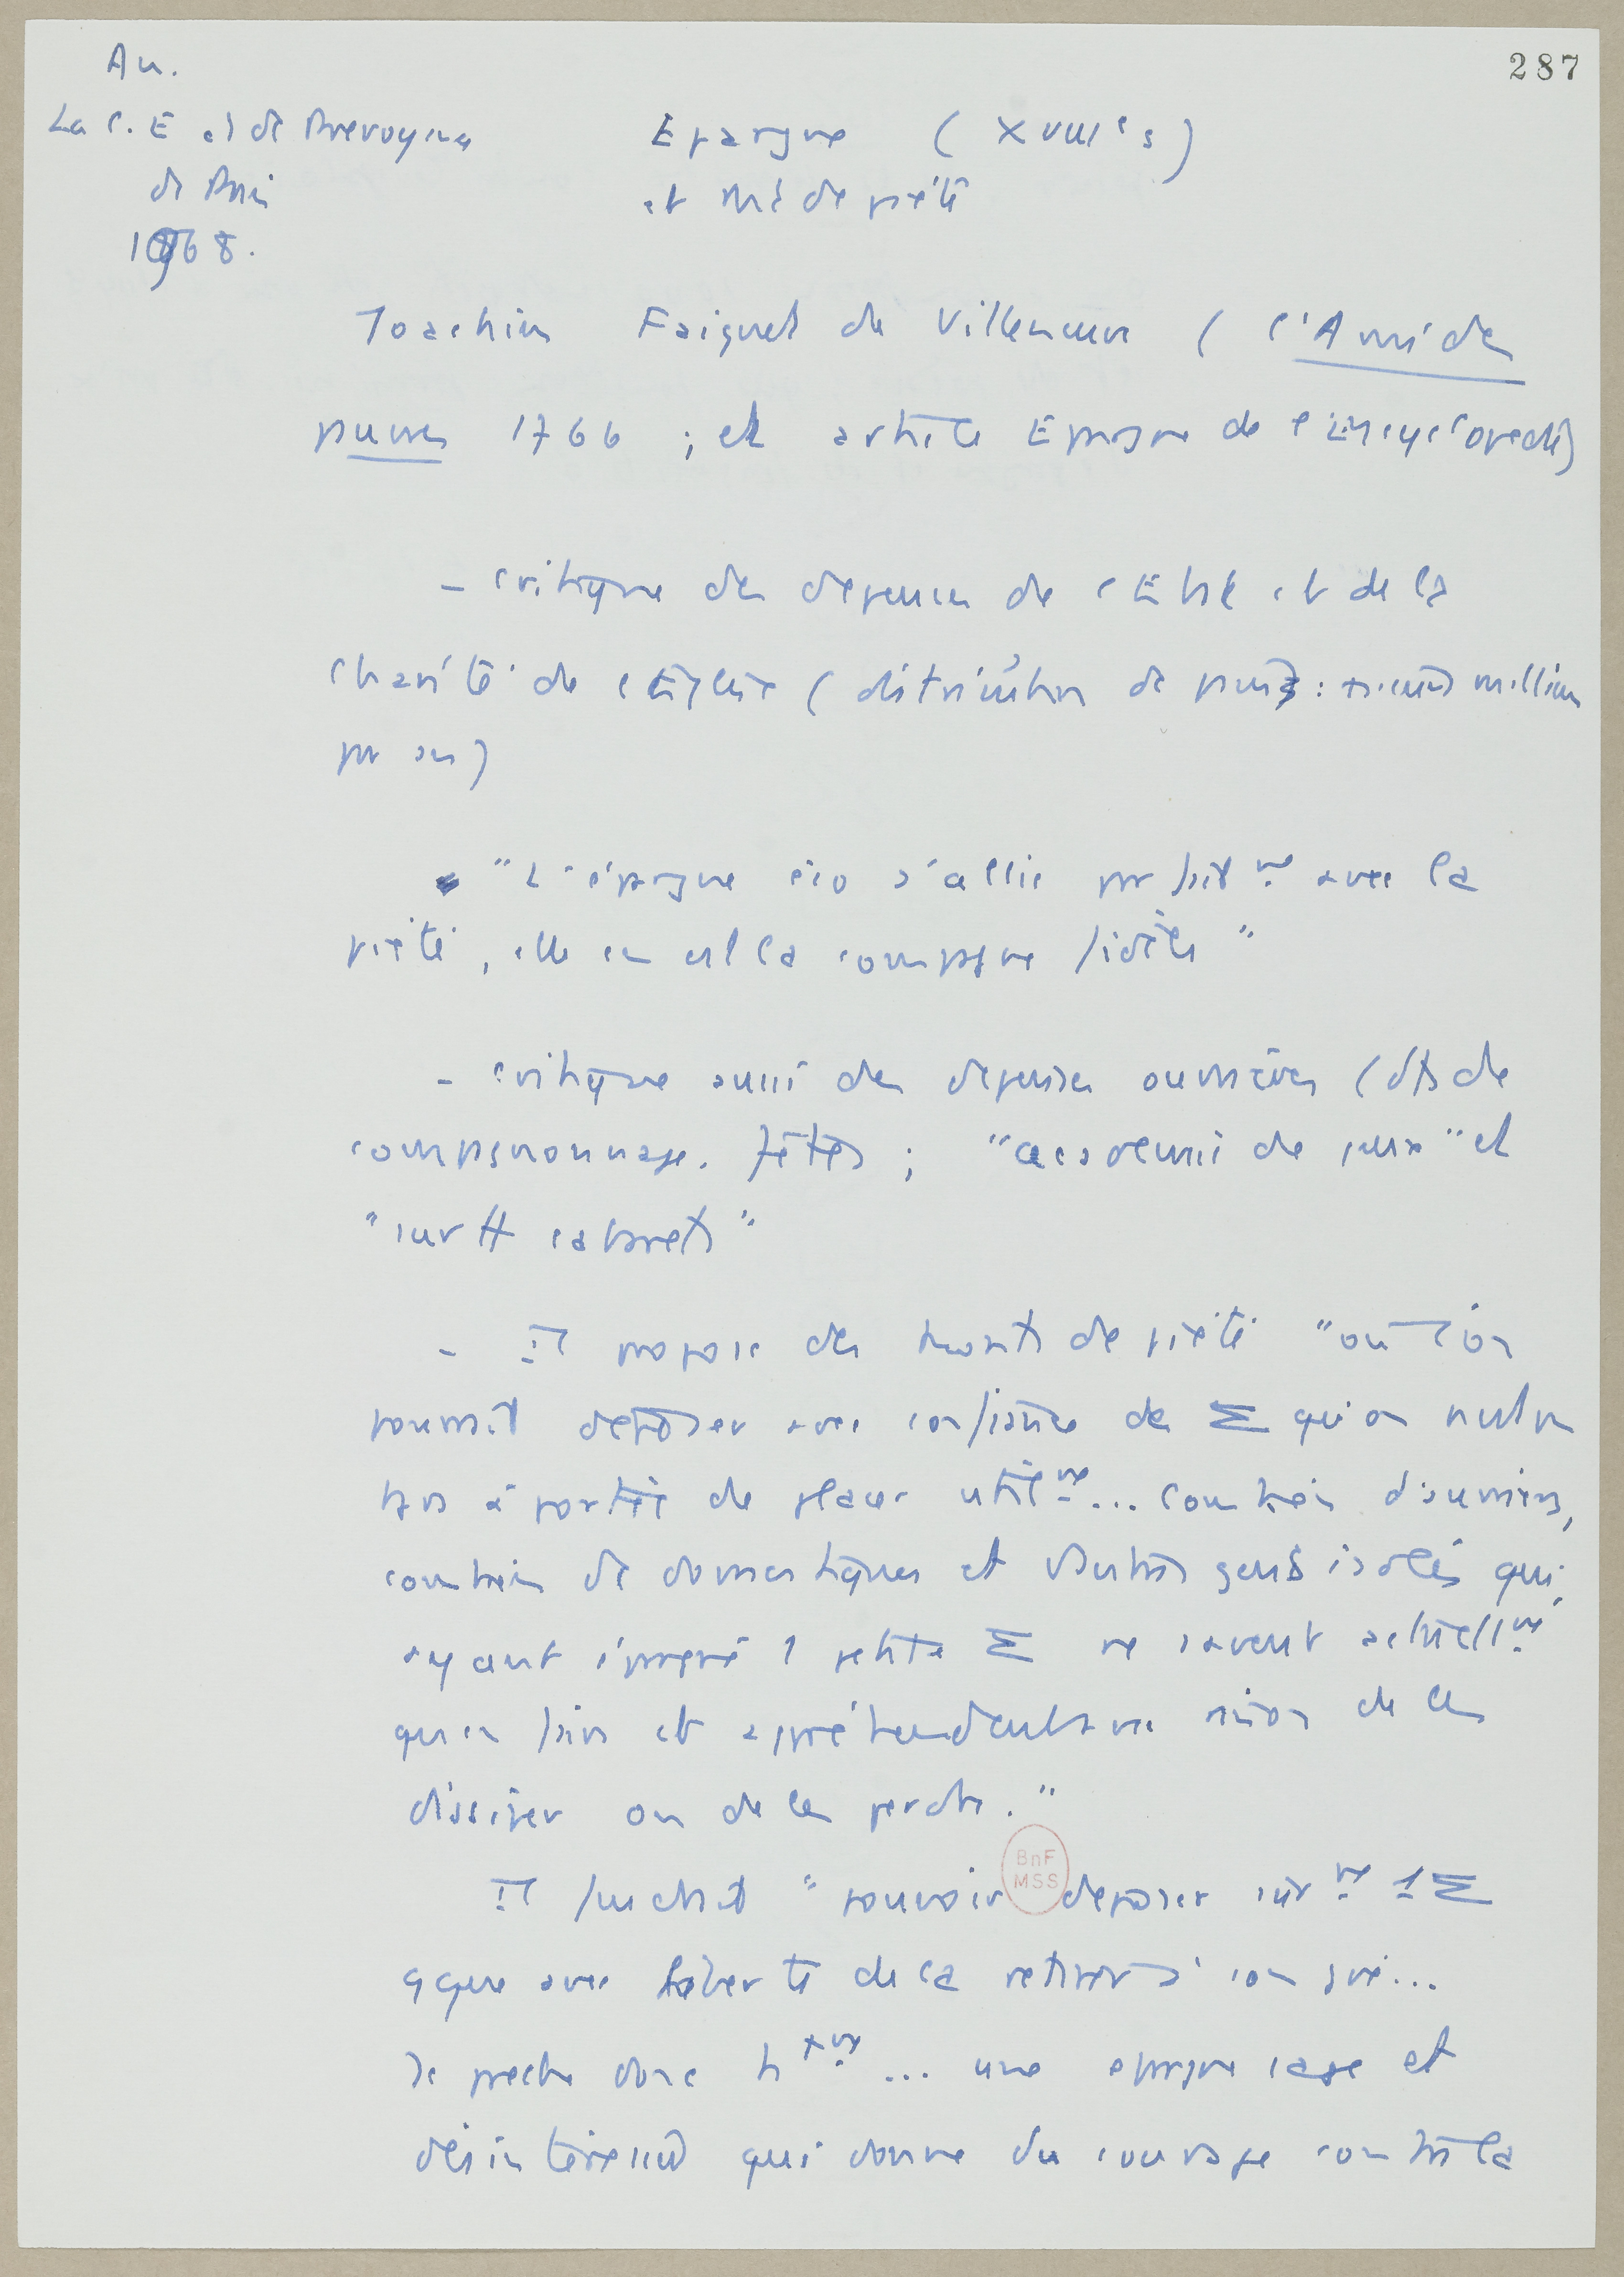 287
An.
La C. E et de Prévoyance
de Paris
1968.
Epargne (XVIIIe s)
et Mt de piété
Joachim Faiguet de Villeneuve (l'Ami des
pauvres 1766 ; et article Epargne de l'Encyclopédie)
- critique des dépenses de l'Etat et de la
charité de l'Eglise (distribution de pains : millions
par an)
"L'épargne s'allie parfait.nt avec la
piété, elle en est la compagne fidèle"
- critique aussi des dépenses ouvrières (dts de
compagnonnage. fêtes ; "académie de jeux" et
"surtt cabarets"
- Il propose des monts de piété "où l'on
pourrait déposer avec confiance des Σ qu'on n'est
pas à portée de placer util.nt... combien d'ouvriers,
combien de domestiques et d'autres gens isolés qui,
ayant épargné 1 petite Σ ne savent actuell.nt
qu'en faire et appréhendent avec raison de les
dissiper ou de les perdre."
Il faudrait "pouvoir déposer sûr.nt 1 Σ
qque avec liberté de la retirer à son gré...
Je prêche donc ... une épargne sage et
désintéressée qui donne du courage contre la
BnF
MSS